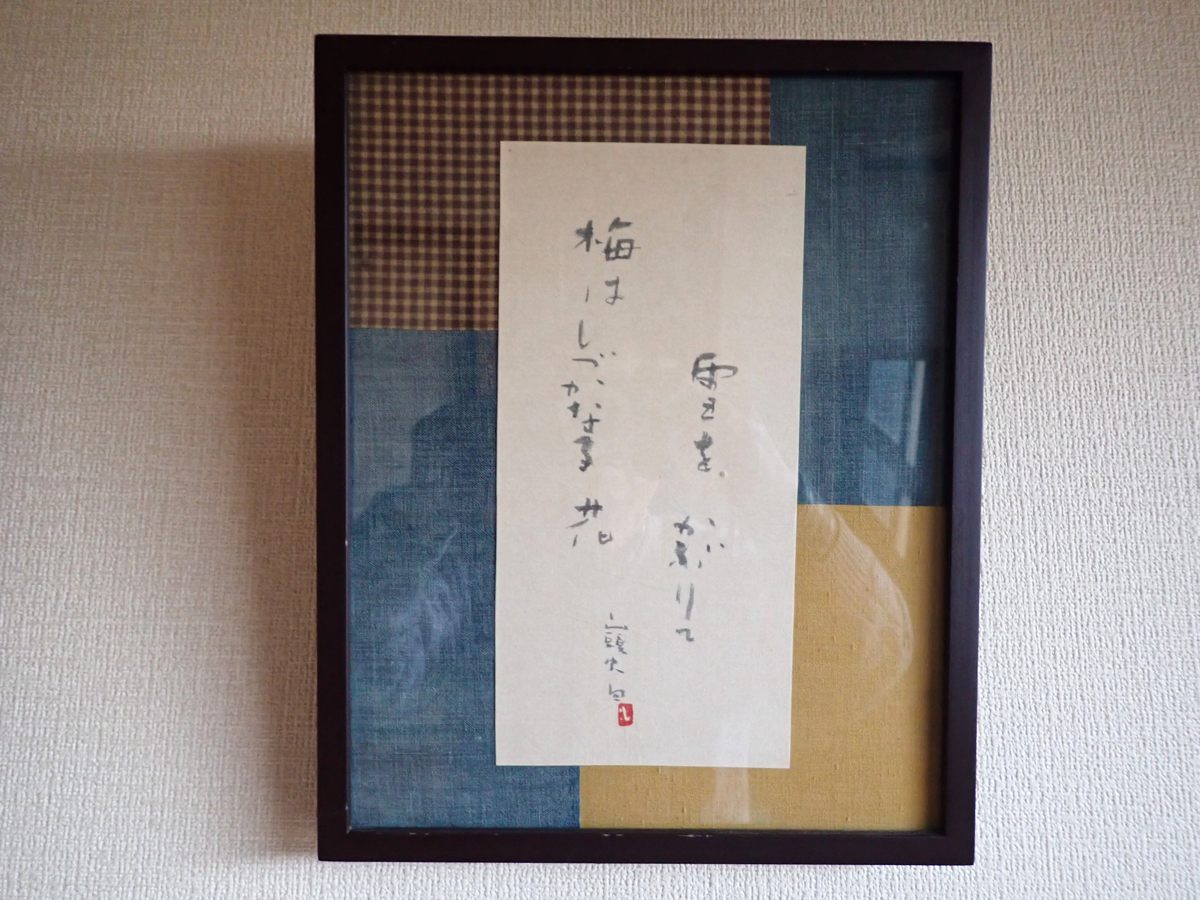 雪をかぶりて
梅はしづかなる花
山頭火